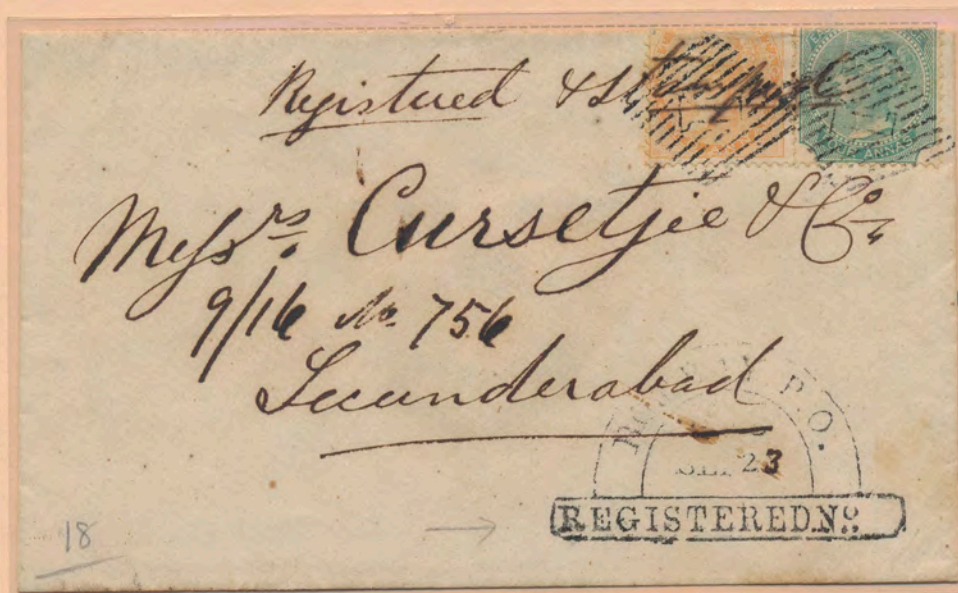 Registered &
Messrs. Cursetjee & Co.
9/16 No. 756
Secunderabad
P.O.
SEP 23
REGISTERED. No.
ANNAS
18